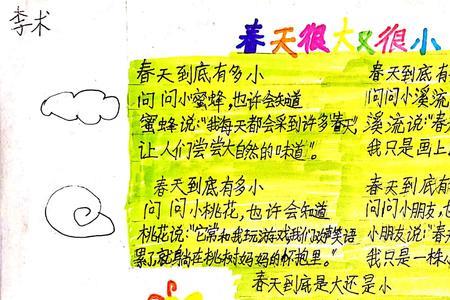 李术
春天很大又很小
春天到底有多小
问问小蜜蜂,也许会知道
蜜蜂说:"我每天都会采到许多春天,
让人们尝尝大自然的味道"。
春天到底有多小
问问小桃花,也许会知道
桃花说:"它常和我玩游戏我们欢声笑语
累了就躺在桃树妈妈的怀抱里。"
春天到底有
问问小溪流
溪流说:"春
我只是画上
春天到底有
问问小朋友,也
小朋友说:"春天
我只是一株小
春天到底是大还是小